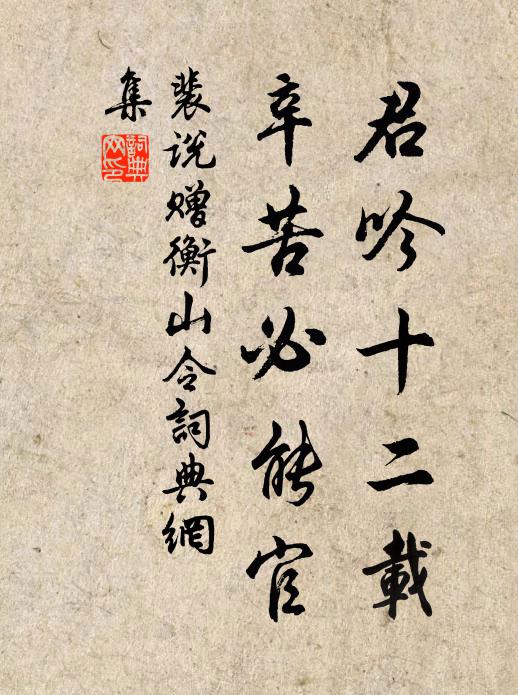 君吟十二載
辛苦必能官
裴说赠衡山令詞典網
集
詞典
网印